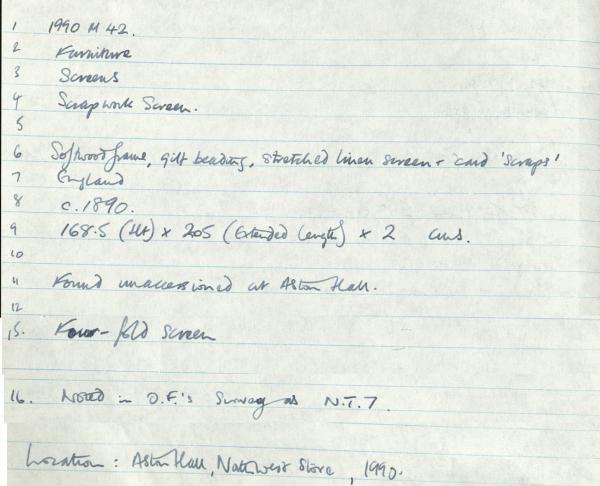 1 1990 M 42.
2 Furniture
3 Screens
4 Scrapwork Screen.
5
6 Softwood frame, gilt beading, stretched linen screen + card 'scraps'
7 England
8 c. 1890.
9 168.5 (Ht) x 205 (Extended Length) x 2 cms.
10
11 Found unaccessioned at Aston Hall.
12
15. Four-fold screen
16. Noted in O.F.'s Survey as N.T.7.
Location: Aston Hall, Store, 1990.